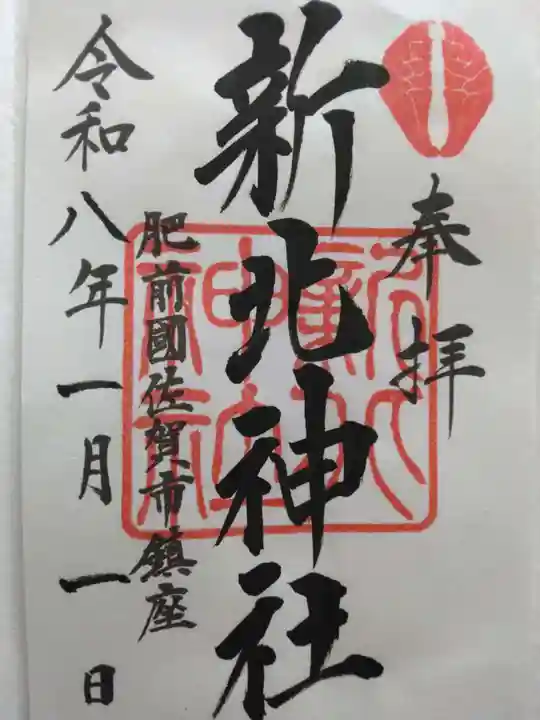 奉拝
新北神社
肥前國佐賀市鎮座
令和八年一月一日